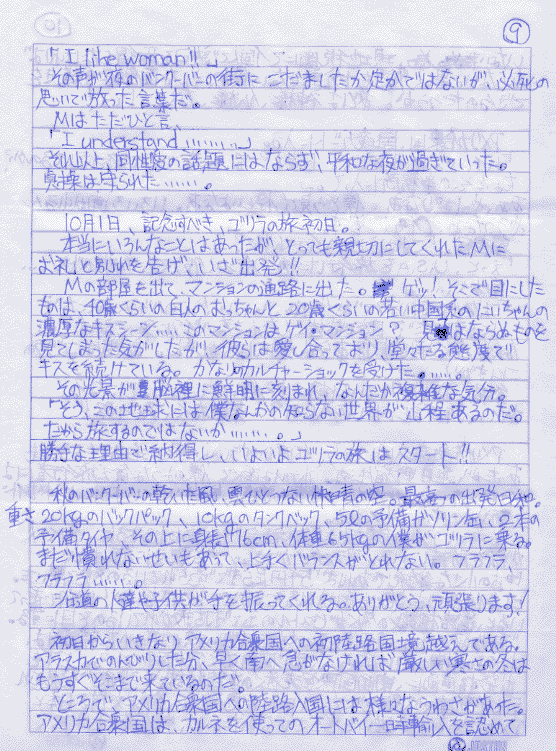 9
「I like woman!!」
その声が夜のバンクーバーの街にこだましたか定かではないが、必死の
思いで放った言葉だ。
Mはただひと言、
「I understand………。」
それ以上、同性愛の話題にはならず、平和な夜が過ぎていった。
貞操は守られた……。
10月1日、記念すべき、ゴリラの旅初日。
本当にいろんなことはあったが、とっても親切にしてくれたMに
お礼と別れを告げ、いざ出発!!
Mの部屋を出て、マンションの通路に出た。ゲッ!そこで目にした
ものは、40歳くらいの白人のおっちゃんと20歳くらいの若い中国系のにいちゃんの
濃厚なキスシーン……このマンションはゲイ・マンション?見てはならぬものを
見てしまった気がしたが、彼らは愛し合っており、堂々たる態度で
キスを続けている。かなりカルチャーショックを受けた……。
その光景が脳裡に鮮明に刻まれ、なんだか複雑な気分。
「そう、この地球には僕なんかの知らない世界が山程あるのだ。
だから旅するのではないか………。」
勝手な理由で納得し、いよいよゴリラの旅はスタート!!
秋のバンクーバーの乾いた風、雲ひとつない快青の空。最高の出発日和。
重さ20kgのバックパック、10kgのタンクバック、5ℓの予備ガソリン缶、2本の
予備タイヤ、その上に身長176cm、体重65kgの僕がゴリラに乗る。
まだ慣れないせいもあって、上手くバランスがとれない。フラフラ、
フラフラ……。
沿道の人達や子供が手を振ってくれる。ありがとう、頑張ります!
初日からいきなりアメリカ合衆国への初陸路国境越えである。
アラスカでのんびりした分、早く南へ急がなければ厳しい寒さの冬は
もうすぐそこまで来ているのだ。
ところで、アメリカ合衆国への陸路入国には様々なうわさがあった。
アメリカ合衆国は、カルネを使ってのオートバイ一時輸入を認めて